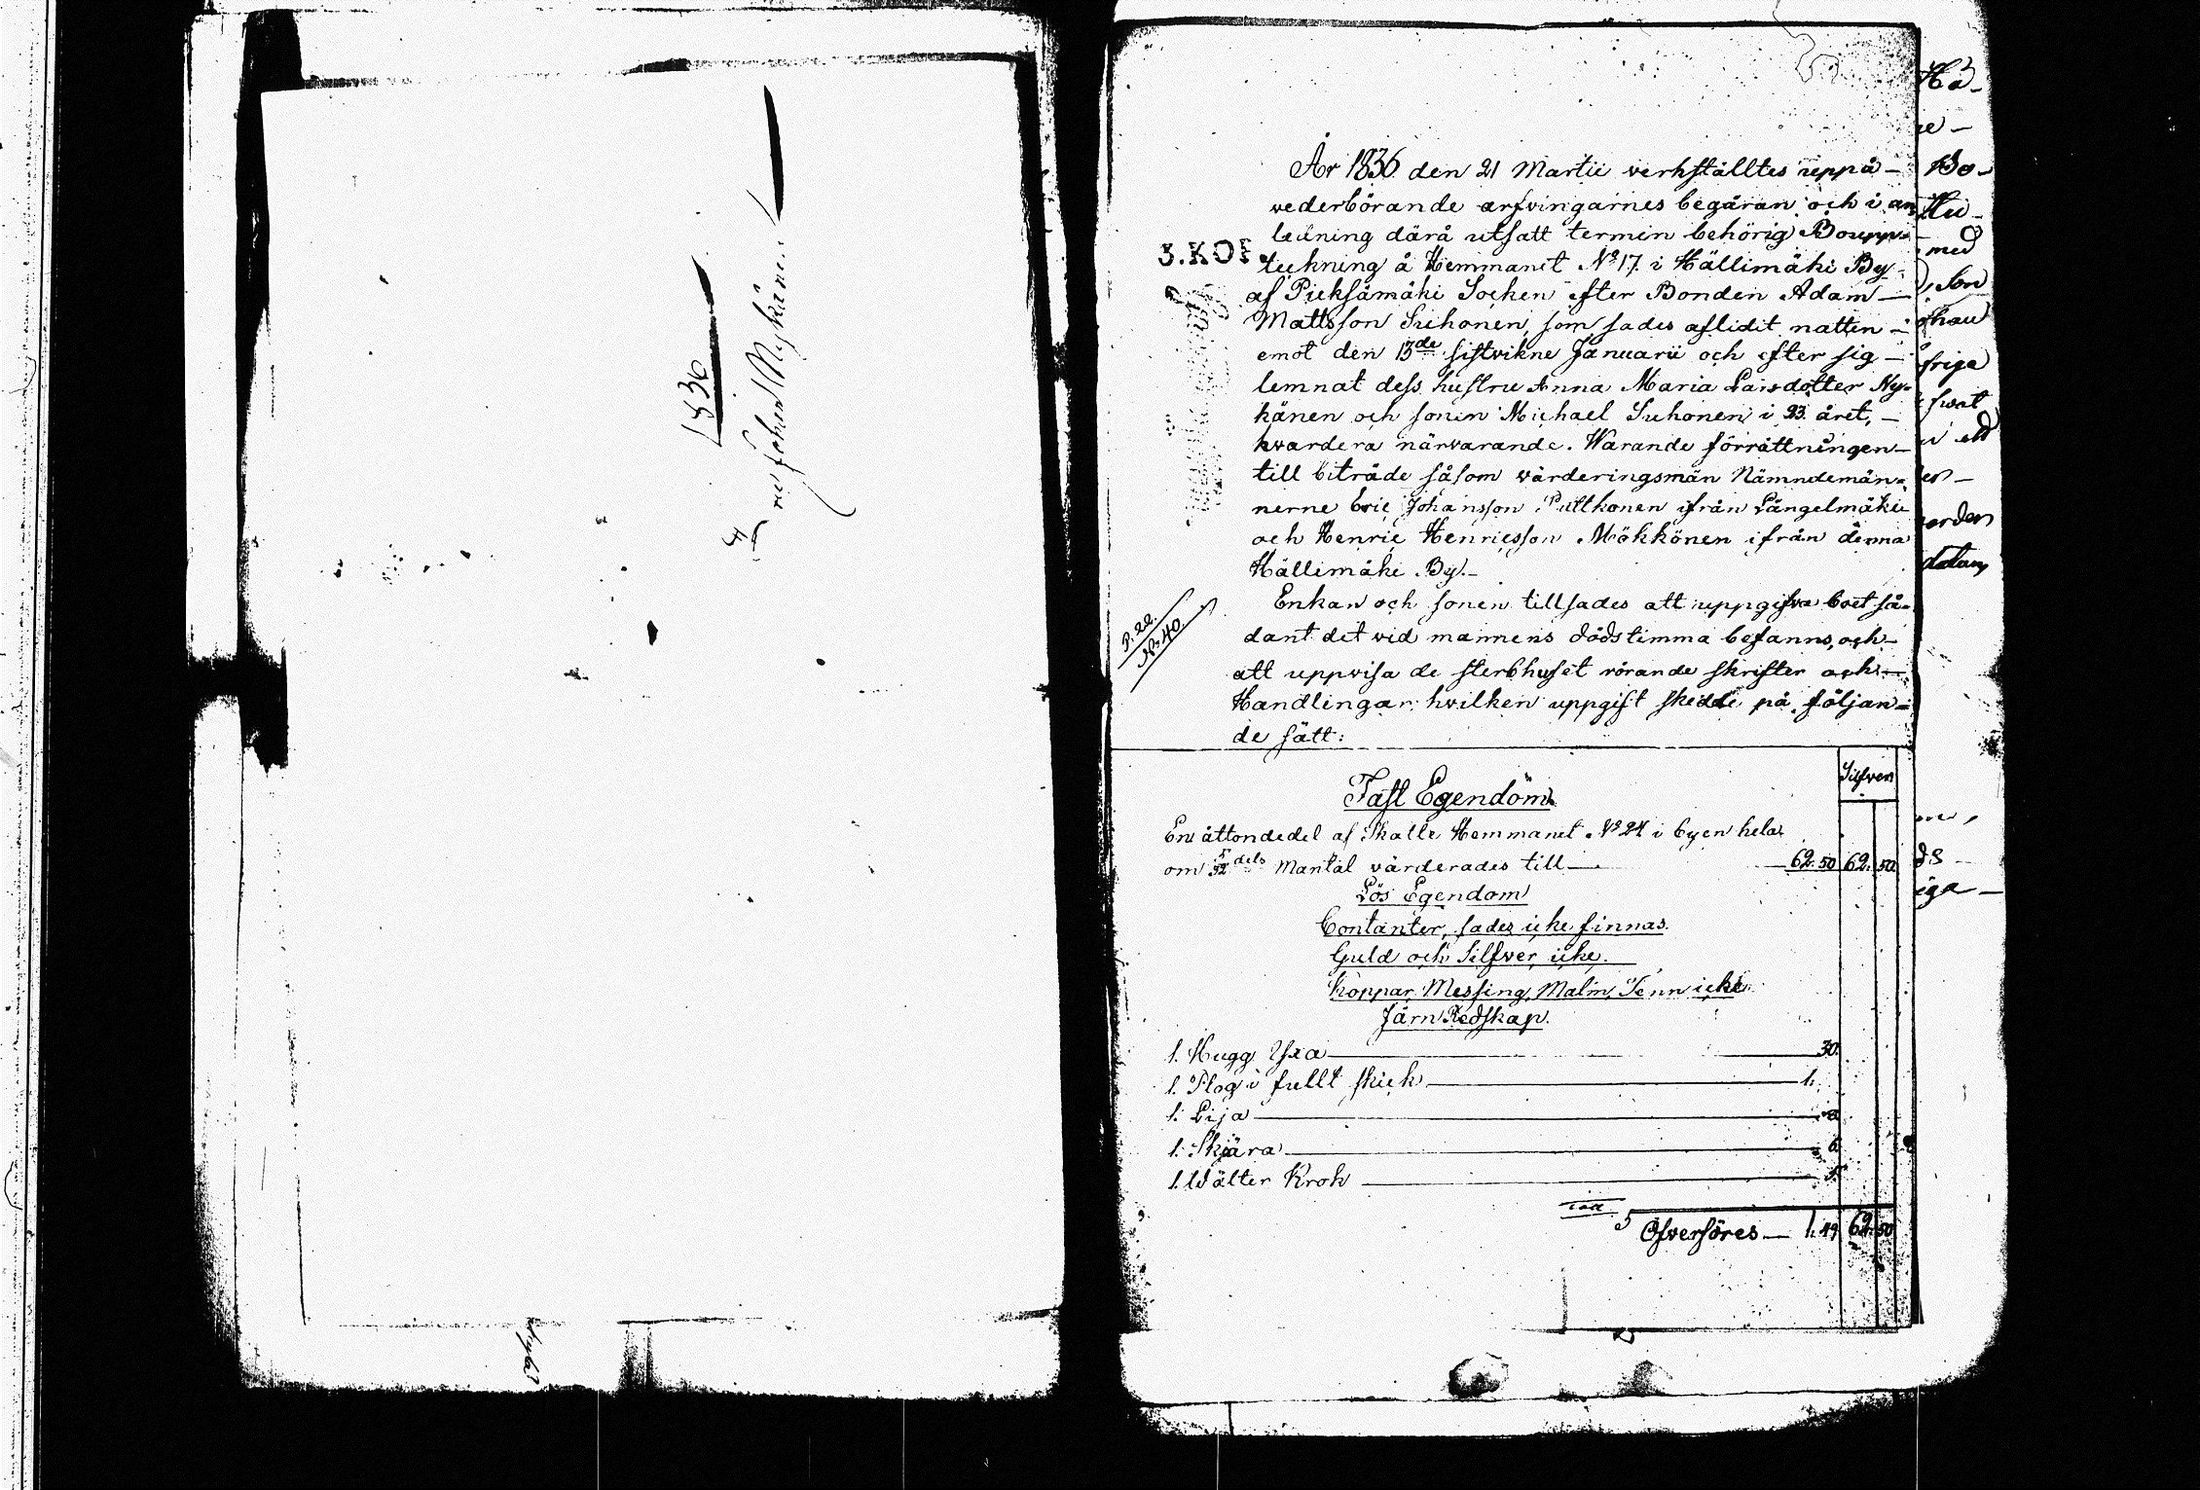 1836
År 1836 den 21 Martii verkställtes uppå
vederbörande arfvingarnes begäran och i an
ledning därå utsatt termin behörig Boupp-
3.KOP
teckning å Hemmanet No 17. i Hällimäki By
af Pieksämäki Sochen efter Bonden Adam
Mattsson Suhonen, som sades aflidit natten
emot den 13de sistvikne Januarii och efter sig
lemnat dess hustru Anna Maria Larsdotter Ny-
känen och sonen Michael Suhonen i 23 året,
hvardera närvarande. Warande förrättningen
till biträde såsom värderingsmän Nämndemän-
nerne Eric Johansson Pulkonen ifrån Längelmäki
och Henric Henricsson Mökkönen ifrån denna
Hällimäki By.
Enkan och sonen tillsades att uppgifva boet så-
dant det vid mannens dödstimma befanns, och
att uppvisa de sterbhuset rörande skrifter och
Handlingar: hvilken uppgift skedde på följan-
de sätt:
P. 22.
No 40.
Silfver
Fast Egendom.
En åttondedel af Skatte Hemmanet No 24 i byen hela
om dels Mantal värderades till 62.50 62. 50
Lös Egendom
Contanter, sades icke finnas.
Guld och Silfver icke.
Koppar, Messing, Malm, Tenn icke
Järn Redskap.
1. Hugg Yxa 30.
1. Plog i fullt skick 1.
1. Lija
1. Skjära 6
1. Wälter Krok 5.
Ofverföres 1.49 62. 50